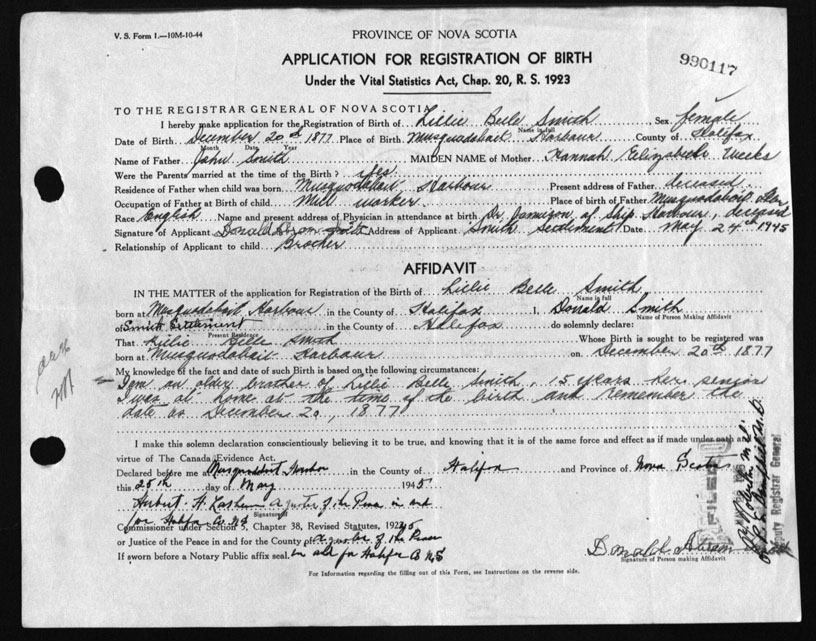 V. S. Form 1.—10M-10-44
PROVINCE OF NOVA SCOTIA
APPLICATION FOR REGISTRATION OF BIRTH
990117
Under the Vital Statistics Act, Chap. 20, R. S. 1923
TO THE REGISTRAR GENERAL OF NOVA SCOTIA
I hereby make application for the Registration of Birth of Lillie Belle Smith Sex female
Name in full
Date of Birth December 20th 1877 Place of Birth Musquodoboit Harbour County of Halifax
Month Date Year
Name of Father John Smith MAIDEN NAME of Mother Hannah Elizabeth Weeks
Were the Parents married at the time of the Birth? yes
Residence of Father when child was born Musquodoboit Harbour Present address of Father deceased
Occupation of Father at Birth of child Mill worker Place of birth of Father Musquodoboit Har
Race English Name and present address of Physician in attendance at birth Dr. Jamison, of Ship Harbour, deceased
Signature of Applicant Donald Smith Address of Applicant Smith Settlement Date May 24th 1945
Relationship of Applicant to child Brother
AFFIDAVIT
IN THE MATTER of the application for Registration of the Birth of Lillie Belle Smith
Name in full
born at Musquodoboit Harbour in the County of Halifax I, Donald Smith
Name of Person Making Affidavit
of Smith Settlement in the County of Halifax do solemnly declare:
Present Residence
That Lillie Belle Smith Whose Birth is sought to be registered was
born at Musquodoboit Harbour on December 20th 1877
My knowledge of the fact and date of such Birth is based on the following circumstances:
I am an older brother of Lillie Belle Smith, 15 years her senior
I was at home at the time of the birth and remember the
date as December 20, 1877
I make this solemn declaration conscientiously believing it to be true, and knowing that it is of the same force and effect as if made under oath and
virtue of The Canada Evidence Act.
Declared before me at Musquodoboit Harbor in the County of Halifax and Province of Nova Scotia
this 25th day of May 1945
Herbert H. a Justice of the Peace in and
Signature of
for Halifax Co. N.S
Commissioner under Section 5, Chapter 38, Revised Statutes, 1923
or Justice of the Peace in and for the County of Justice of the Peace
If sworn before a Notary Public affix seal. in and for Halifax Co N S
Donald
Signature of Person making Affidavit
FILED
Deputy Registrar General
For Information regarding the filling out of this Form, see Instructions on the reverse side.